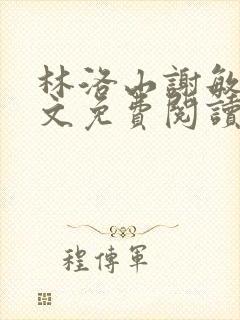 林洛山謝敏
文免費閱讀
程傳軍